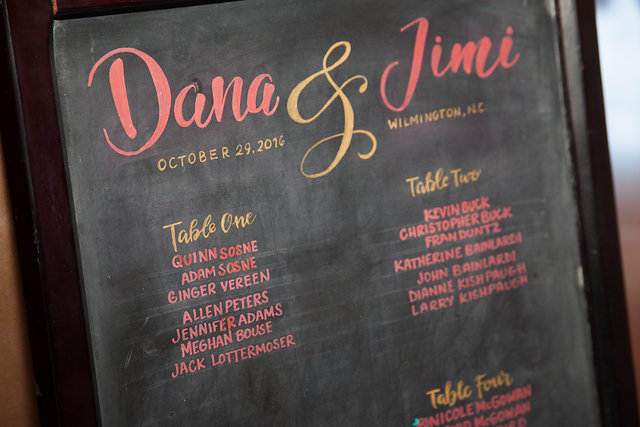 Dana & Jimi
OCTOBER 29, 2016
WILMINGTON, N.C.
Table One
QUINN SOSNE
ADAM SOSNE
GINGER VEREEN
ALLEN PETERS
JENNIFER ADAMS
MEGHAN BOUSE
JACK LOTTERMOSER
Table Two
KEVIN BUCK
CHRISTOPHER BUCK
FRAN DUNTZ
KATHERINE BAINLARDI
JOHN BAINLARDI
DIANNE KISHPAUGH
LARRY KISHPAUGH
Table Four
NICOLE McGOWAN
McGOWAN